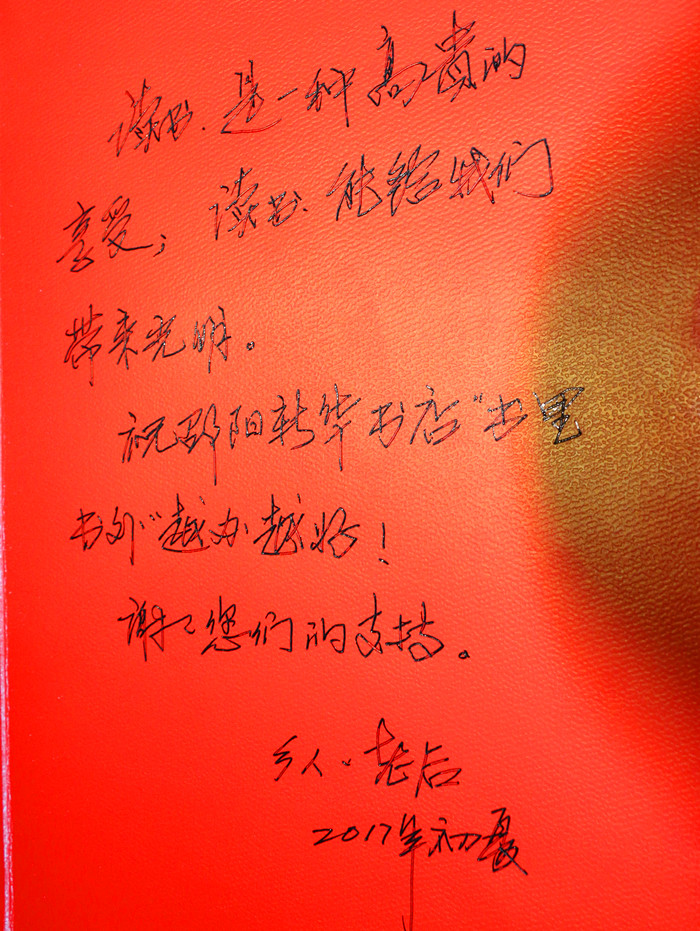 读书，是一种高贵的
享受；读书，能给我们
带来光明。
祝邵阳新华书店“书里
书外”越办越好！
谢谢您们的支持。
乡人、老后
2017年初夏